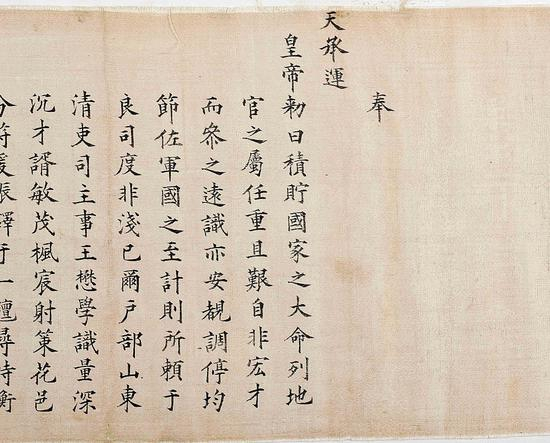 奉
天承運
皇帝勅曰積貯國家之大命列地
官之屬任重且艱自非宏才
而叅之遠識亦安覩調停均
節佐軍國之至計則所頼于
良司度非淺已爾户部山東
清吏司主事王懋學識量深
沉才諝敏茂楓宸射策花邑
分符爰振鐸于一氊尋持衡